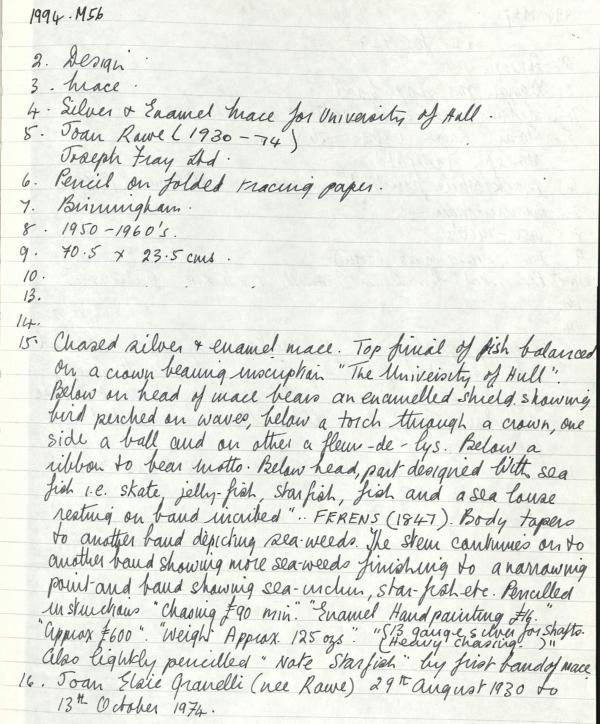 1994.M56
2. Design
3. Mace.
4. Silver & Enamel Mace for University of Hull.
5. Joan Rawe (1930-74)
Joseph Fray Ltd.
6. Pencil on folded tracing paper.
7. Birmingham.
8. 1950-1960's.
9. 70.5 x 23.5 cms.
10.
13.
14.
15. Chased silver & enamel mace. Top finial of fish balanced
on a crown bearing inscription "The University of Hull".
Below on head of mace bears an enamelled shield showing
bird perched on waves, below a torch through a crown, one
side a ball and on other a fleur-de-lys. Below a
ribbon to bear motto. Below head, part designed with sea
fish i.e. skate, jelly-fish, starfish, fish and a sea louse
resting on band incribed ".. FERENS (1847). Body tapers
to another band depicting sea-weeds. The stem continues on to
another band showing more sea-weeds finishing to a narrowing
point and band showing sea-urchin, star-fish etc. Pencilled
instructions "Chasing £90 min." "Enamel Handpainting £16."
"Approx £600". "Weight Approx 125 ozs". "S/3 gauge silver for shafts.
(Heavy chasing. )"
Also lightly pencilled "Note Starfish" by first band of mace
16. Joan Elsie Granelli (nee Rawe) 29th August 1930 to
13th October 1974.